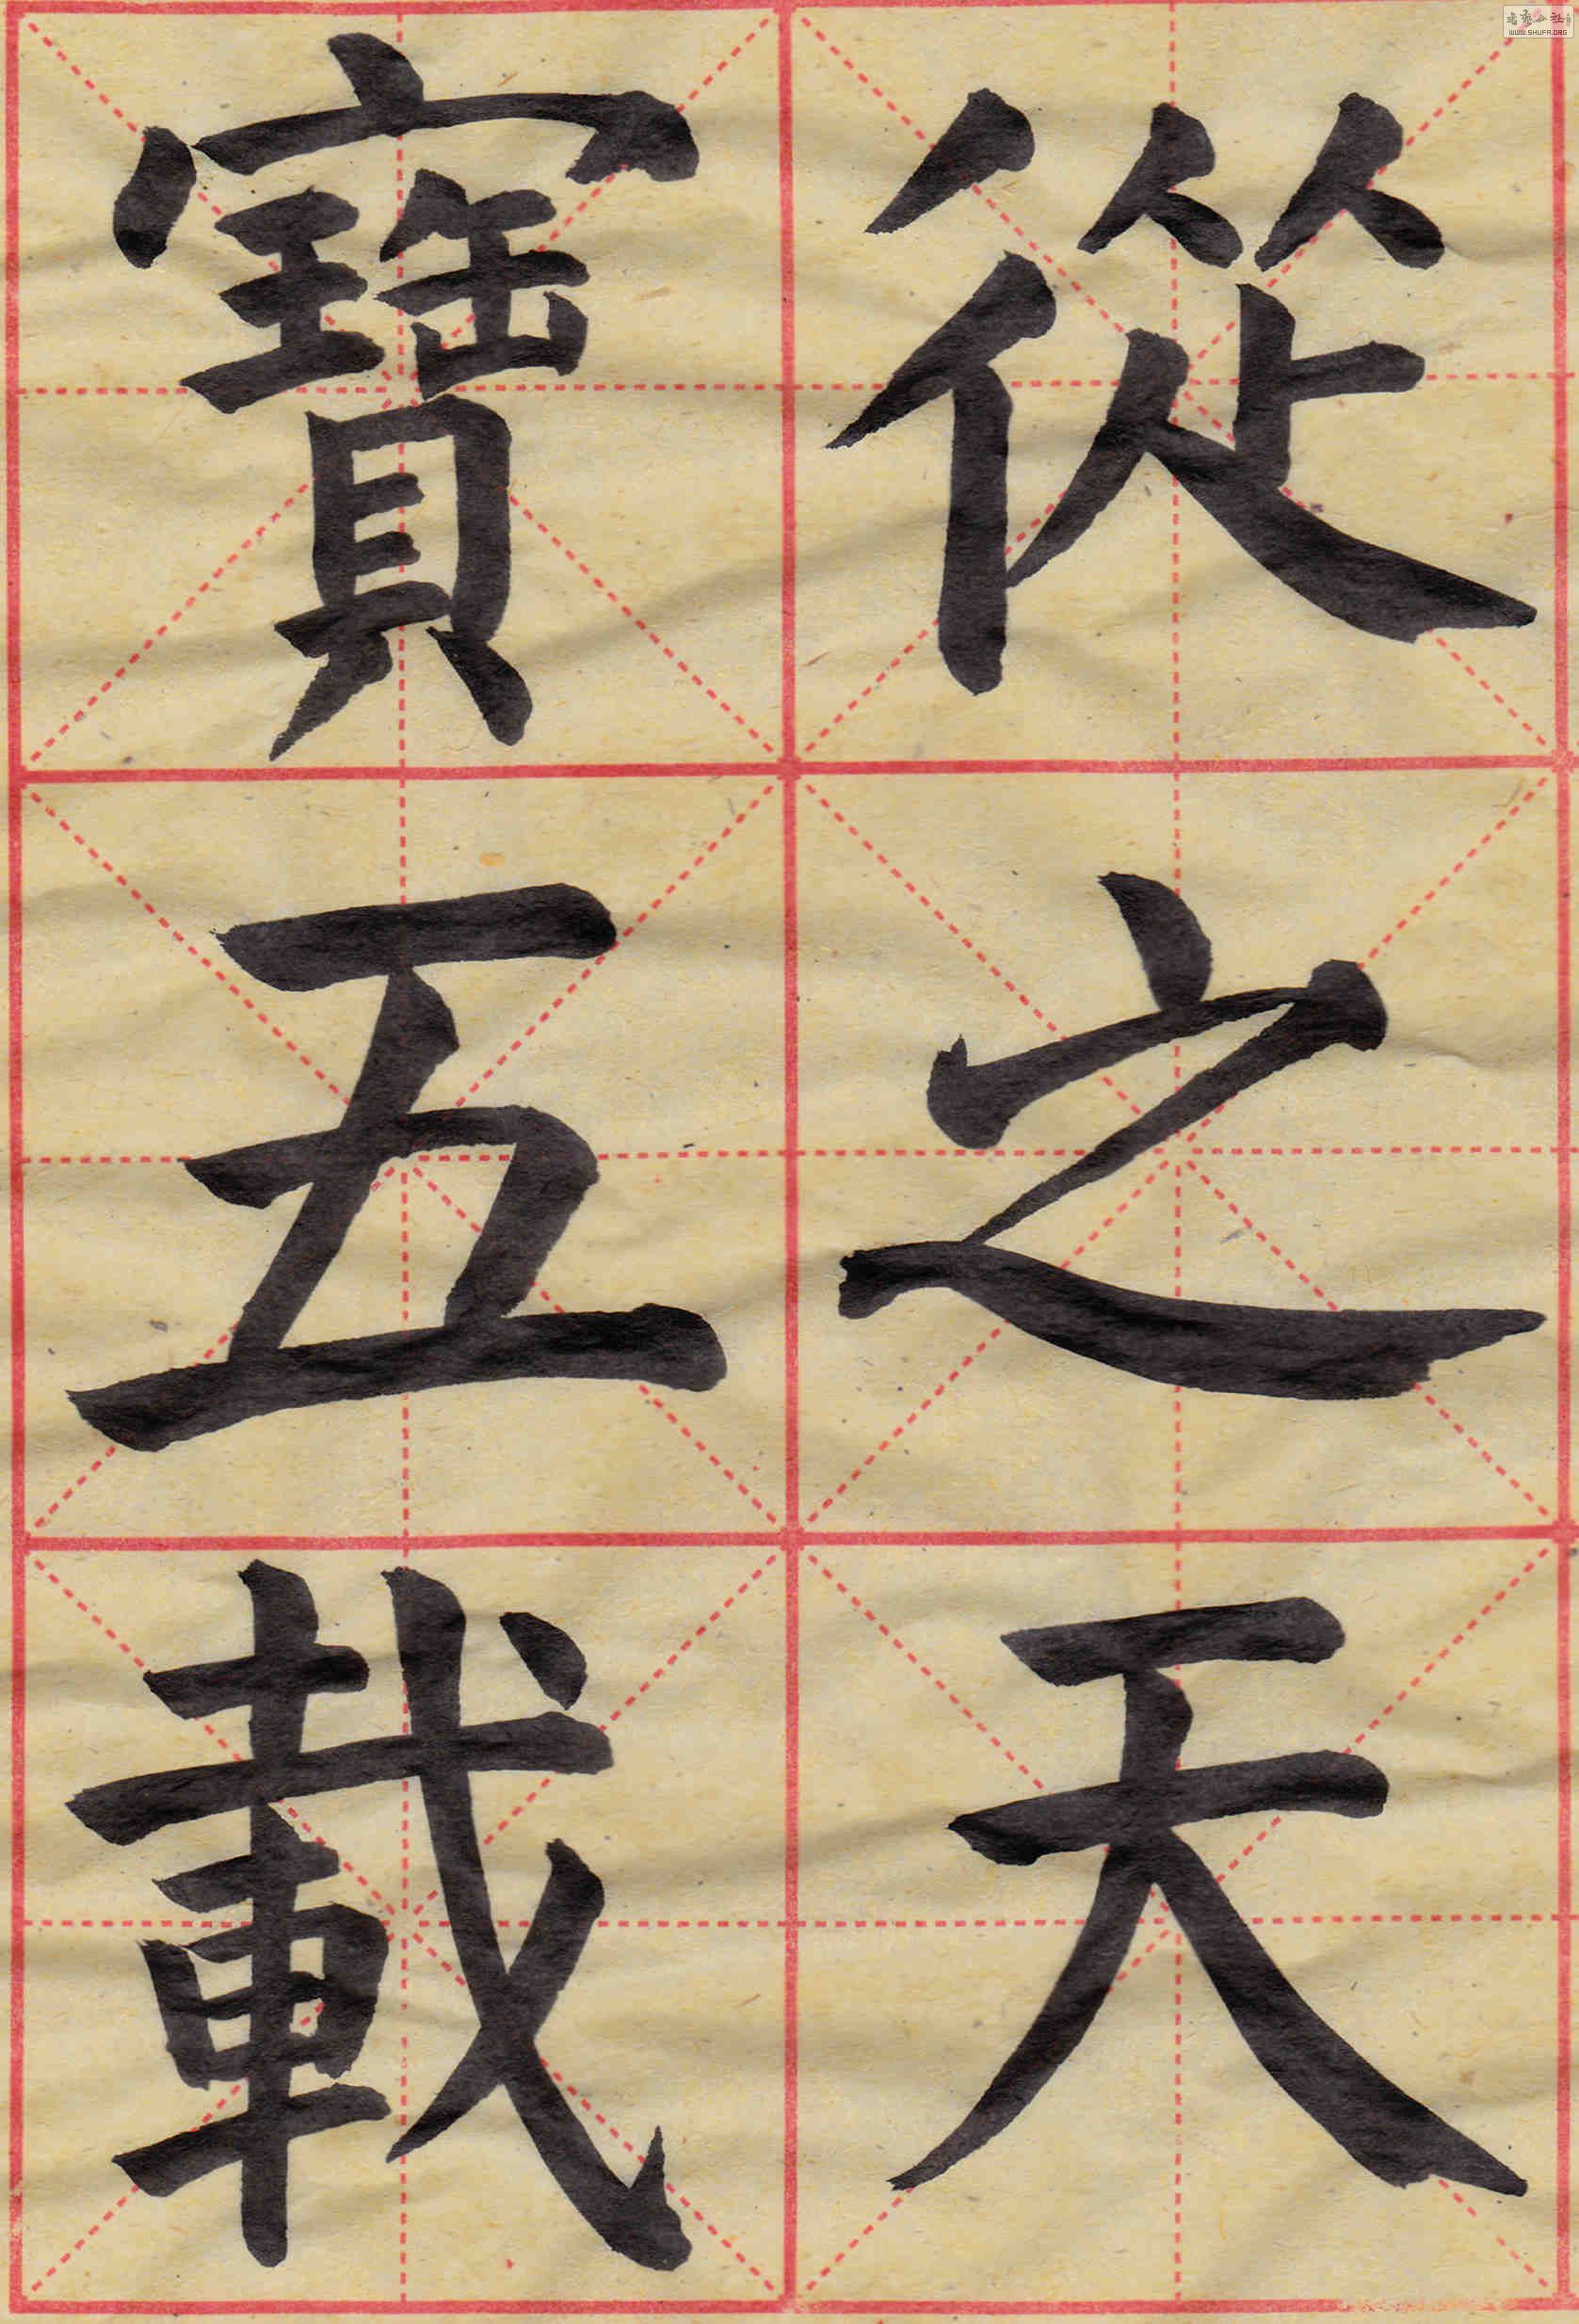 從之天
寶五載
WWW.SHUFA.ORG